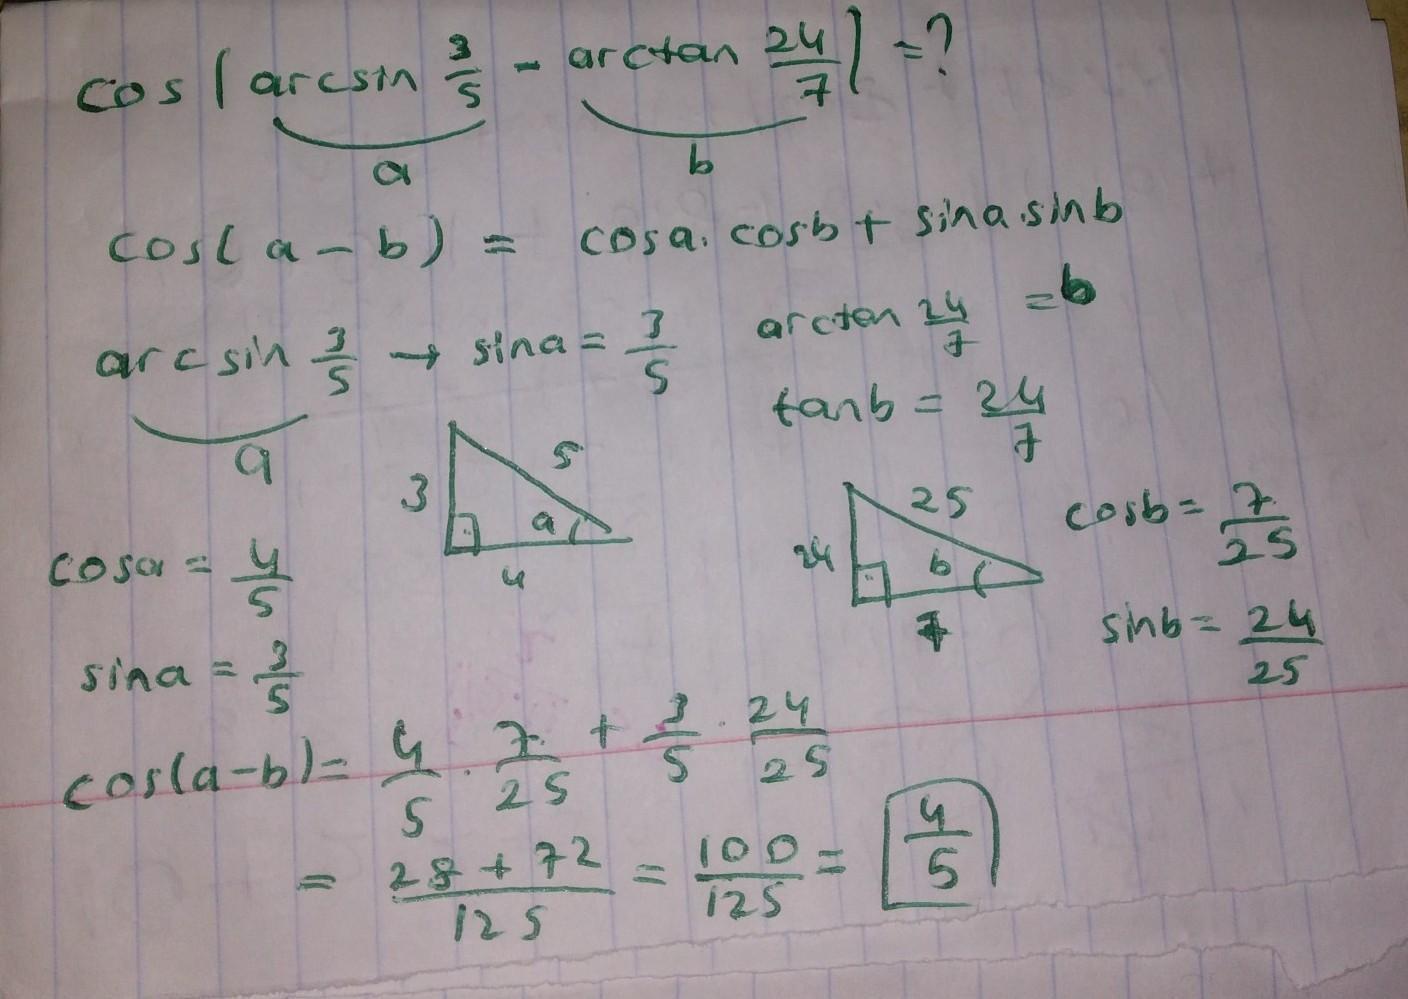 cos(arcsin 3/5 - arctan 24/7) = ?
a b
cos(a - b) = cosa. cosb + sina.sinb
arcsin 3/5 → sina = 3/5
a
arctan 24/7 = b
tanb = 24/7
3 5 a 4
25 24 b 7
cosb = 7/25
cosa = 4/5
sinb = 24/25
sina = 3/5
cos(a-b) = 4/5 . 7/25 + 3/5 . 24/25
= 28 + 72/125 = 100/125 = 4/5